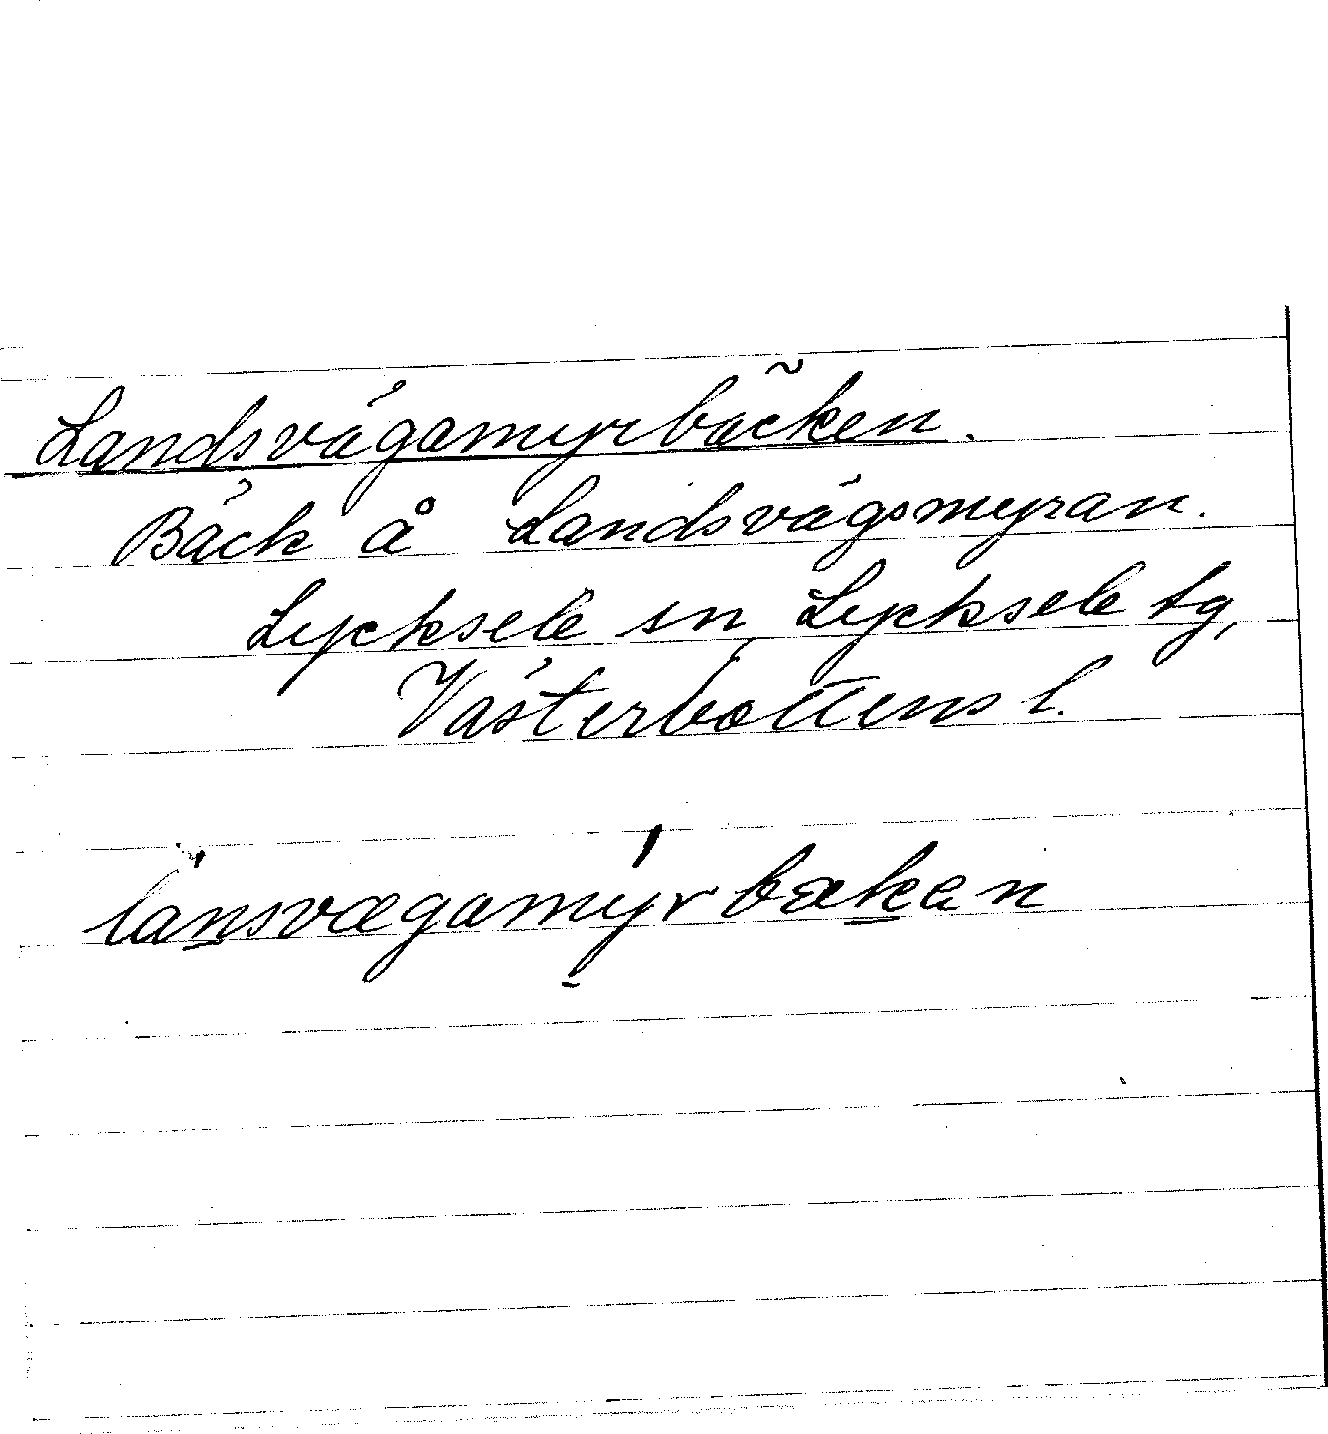 Landsvägamyrbäcken.
Bäck å Landsvägsmyran.
Lycksele sn, Lycksele tg,
Västerbottens l.
lansvægamyrbækan